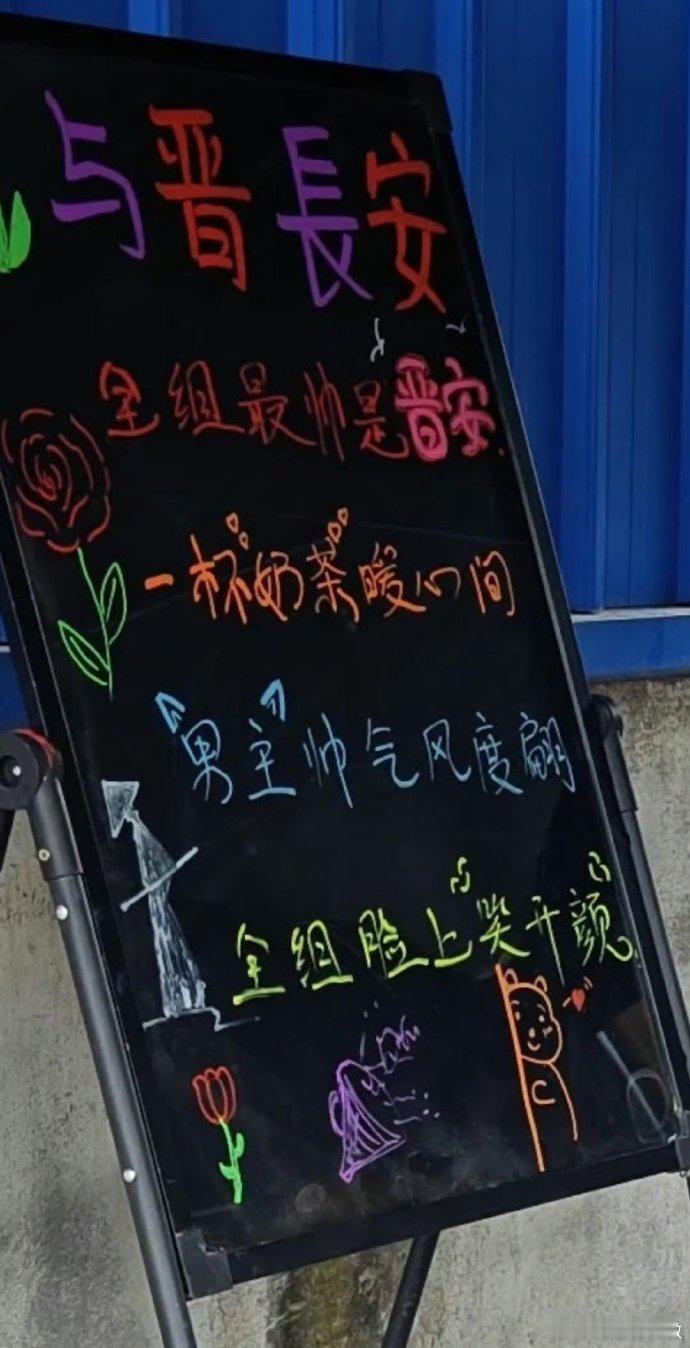 与晋長安
全组最帅是晋安
一杯奶茶暖心间
"男主"帅气风度翩
全组脸上笑开颜